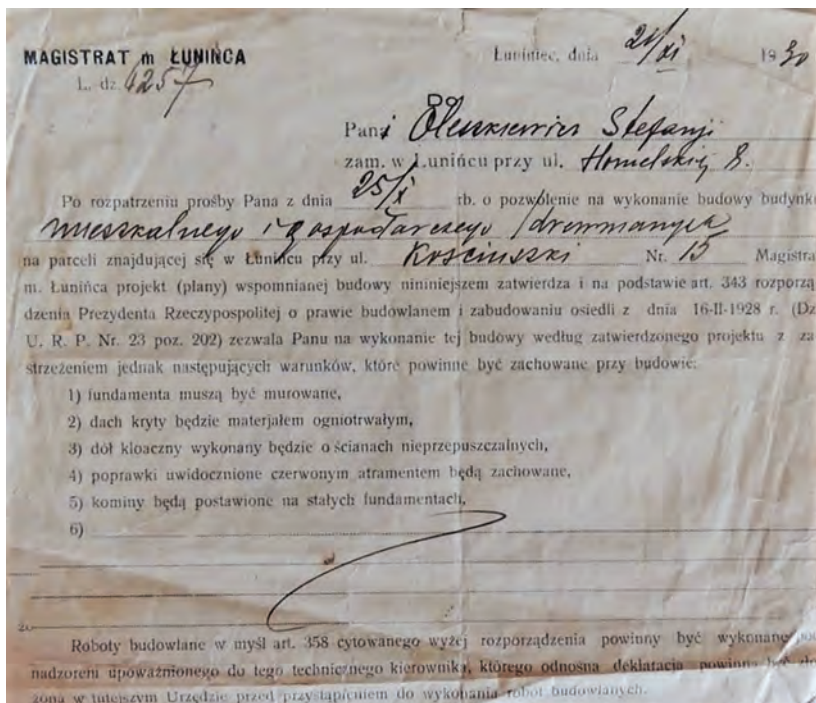 MAGISTRAT m ŁUNIŃCA
Łuniniec, dnia 21/XI 1930
L. dz. 6257
Do
Pani Oleszkiewicz Stefanji
zam. w Łunińcu przy ul. Homelskiej 8.
Po rozpatrzeniu prośby Pana z dnia 25/X rb. o pozwolenie na wykonanie budowy budynku
mieszkalnego i gospodarczego /drewnianych
na parceli znajdującej się w Łunińcu przy ul. Kościuszki Nr. 15 Magistra
m. Łunińca projekt (plany) wspomnianej budowy nininiejszem zatwierdza i na podstawie art. 343 rozporzą
dzenia Prezydenta Rzeczypospolitej o prawie budowlanem i zabudowaniu osiedli z dnia 16-II-1928 r. (Dz
U. R. P. Nr. 23 poz. 202) zezwala Panu na wykonanie tej budowy według zatwierdzonego projektu z za
strzeżeniem jednak następujących warunków, które powinne być zachowane przy budowie:
1) fundamenta muszą być murowane,
2) dach kryty będzie materjałem ogniotrwałym,
3) dół kloaczny wykonany będzie o ścianach nieprzepuszczalnych,
4) poprawki uwidocznione czerwonym atramentem będą zachowane,
5) kominy będą postawione na stałych fundamentach,
6)
Roboty budowlane w myśl art. 358 cytowanego wyżej rozporządzenia powinny być wykonane po
nadzorem upoważnionego do tego technicznego kierownika, którego odnośna deklaracja powinna być zło
żona w tutejszym Urzędzie przed przystąpieniem do wykonania robót budowlanych.